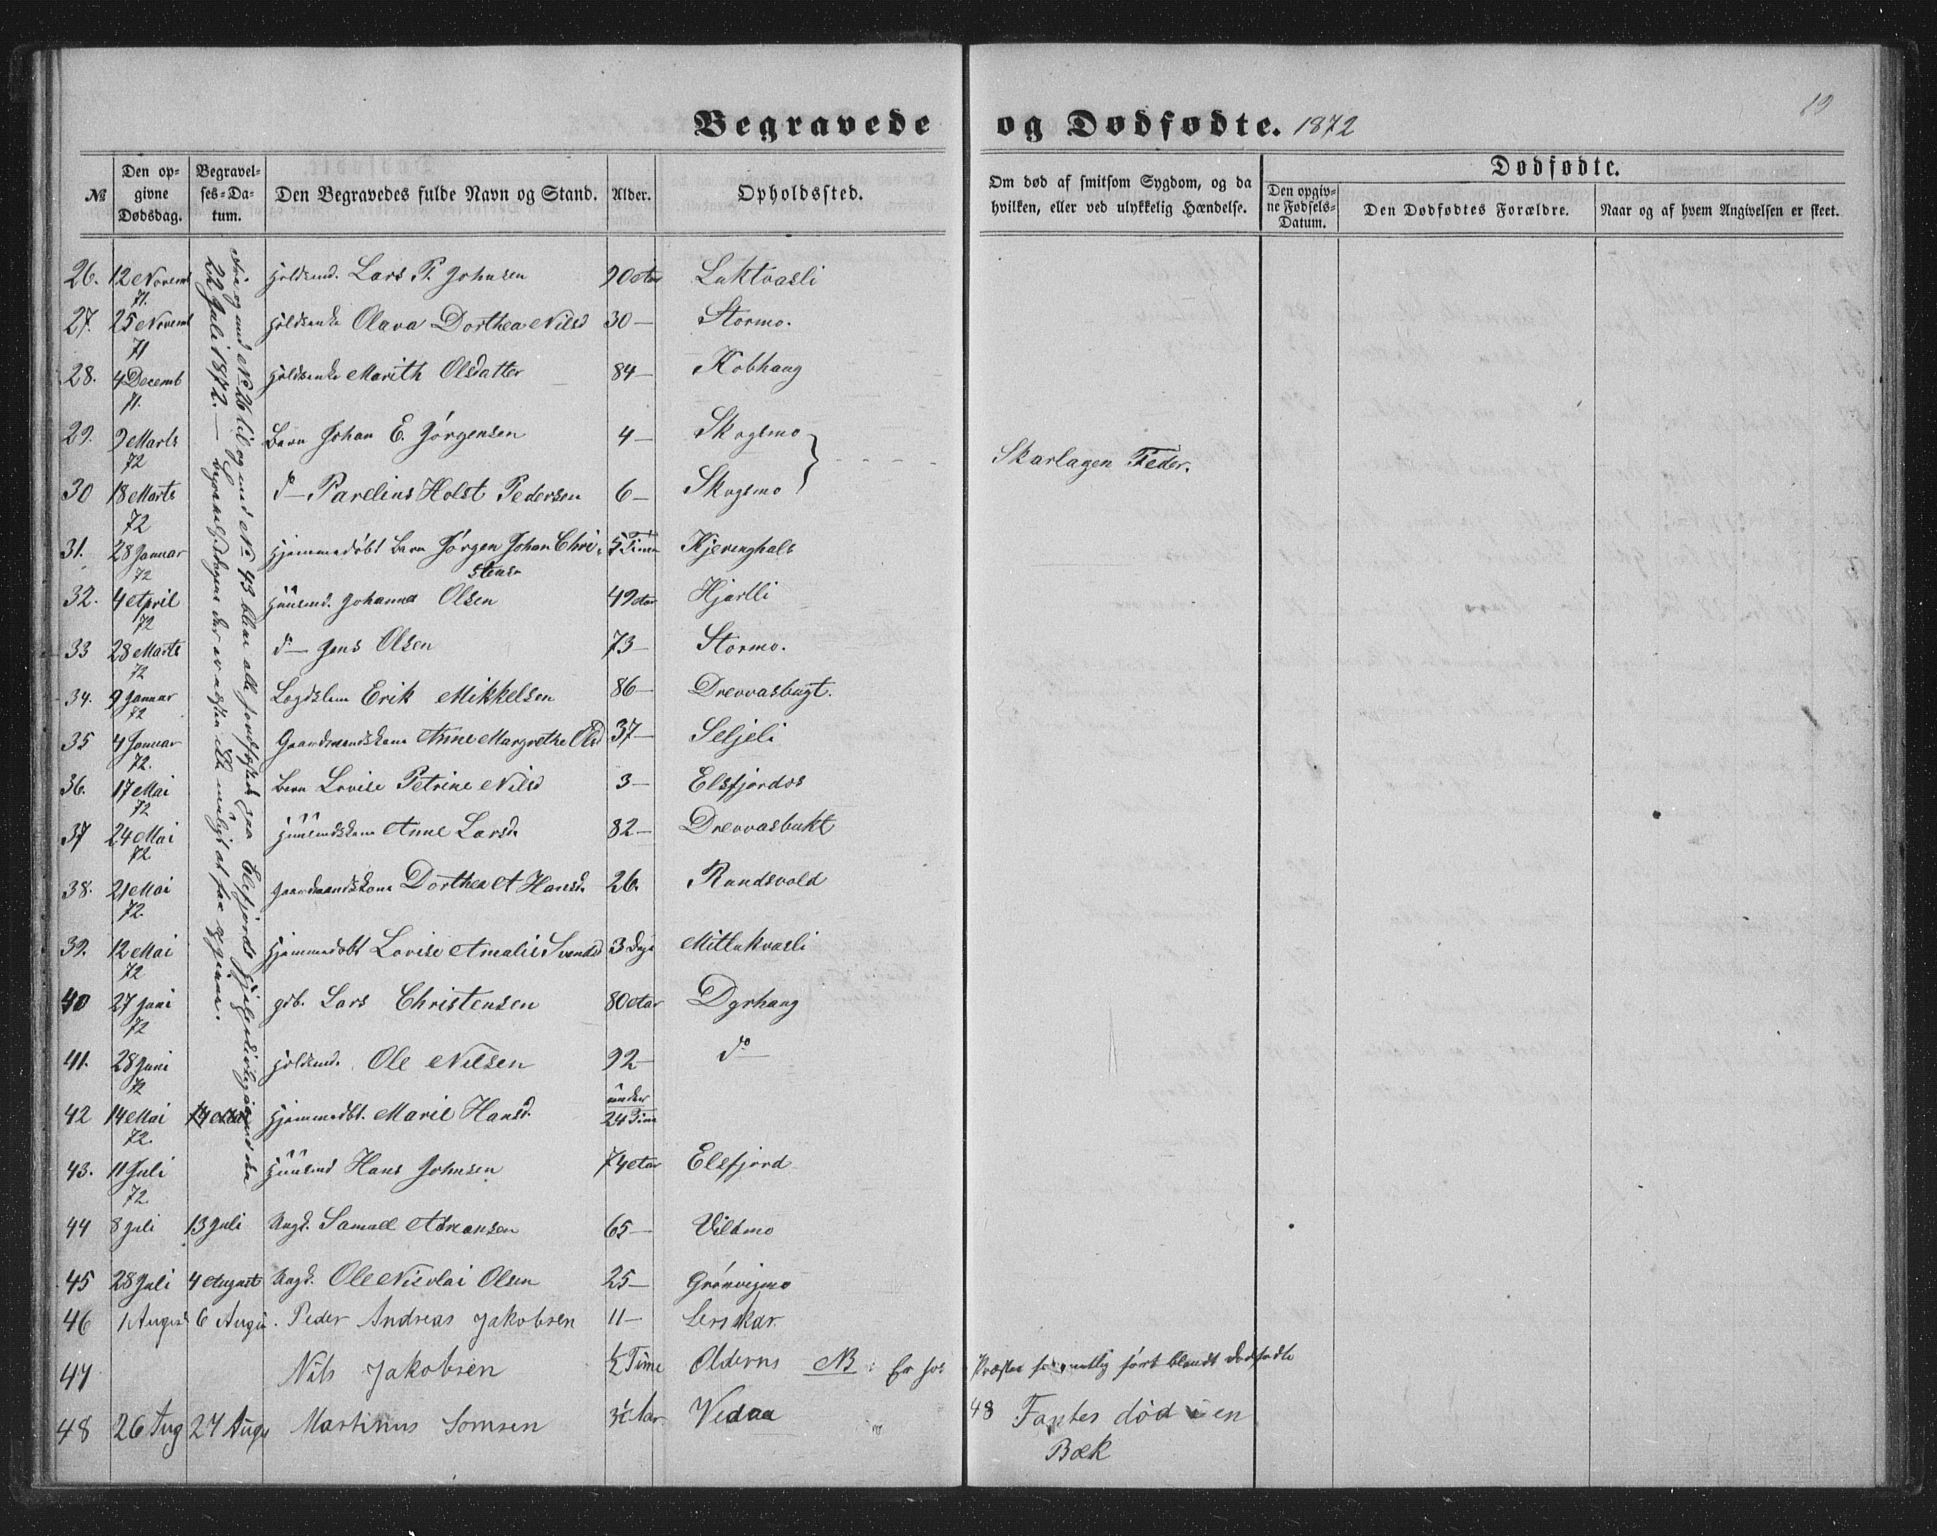 19
Begravede og Dødfødte. 1872
№
Den opgivne Dødsdag.
Begravelses-Datum.
Den Begravedes fulde Navn og Stand.
Alder.
Opholdssted.
Om død af smitsom Sygdom, og da hvilken, eller ved ulykkelig Hændelse.
Dødfødte.
Den opgivne Fødsels-Datum.
Den Dødfødtes Forældre.
Naar og af hvem Angivelsen er skeet.
Fra og med No 26 til og med No 43 blev alle jordfæstede paa Elsfjords
22 Juli 1872. — Begravelsesdagene der er næsten ikke muligt at faa opgivne.
26. 12 Novemb 71. Lars P. Johnsen 90 Aar Luktvasli
27. 25 Novemb 71 Olava Dorthea Nilsd 30 — Stormo.
28. 4 Decemb 71. Marith Olsdatter 84 — Kobhaug
29. 9 Marts 72 Barn Johan E. Jørgensen 4 — Skogsmo
Skarlagen Feber.
30 18 Marts 72 do — Parelius Holst Pedersen 6 — Skogsmo
31. 28 Januar 72 Hjemmedøbt Barn Jørgen Johan Christens. 5 Timer Kjeringhals
32. 4 April 72 Huusmd. Johannes Olsen 49 Aar Hjartli
33 28 Marts 72 do — Jens Olsen 73 — Stormo.
34. 9 Januar 72 Lægdslem Erik Mikkelsen 86 — Drevvasbugt.
35 4 Januar 72. Gaardmandskone Anne Margrethe Olsd 37 — Seljeli
36. 17 Mai 72 Barn Lovise Petrine Nilsd 3 — Elsfjordos
37 24 Mai 72 Huusmdskone Anne Larsd. 82 — Drevvasbukt
38. 21 Mai 72. Gaardmandskone Dorthea A Hansd. 26. Randsvold
39. 12 Mai 72 Hjemmedøbt Lovise Amalie Svendsd 3 Dage Mitlukvasli
40 27 Juni 72 gdb. Lars Christensen 80 Aar Dyrhaug
41. 28 Juni 72 Ole Nilsen 92 — do —
42 14 Mai 72. 14 Mai Hjemmedbt. Marie Hansd. under 24 Time
43. 11 Juli 72. Huusmd Hans Johnsen 74 Aar Elsfjord
44 8 Juli 13 Juli Ungk. Samuel Adreansen 65 — Vildmo
45 28 Juli 4 August Ungk. Ole Nicolai Olsen 25 — Grønvigmo
46 1 August 6 Augu. Peder Andreas Jakobsen 11 — Lerskar
47 Nils Jakobsen ½ Time Olderns NB: Er hos Præsten ført blandt dødfødte
48 26 Aug 27 Augu Martinus Tomsen 3½ Aar Vedaa
48 Fantes død i en
Bæk